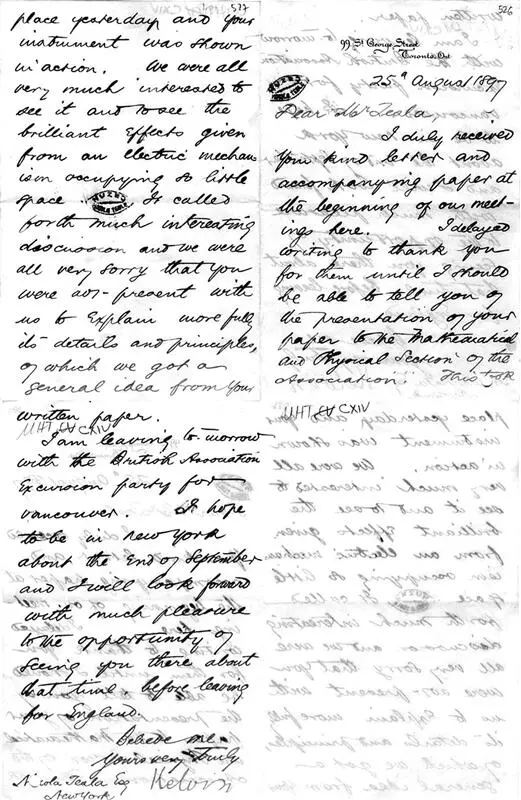 526
99 St George Street
Toronto, Ont
25th August 1897
Dear Mr Tesla
I duly received
your kind letter and
accompanying paper at
the beginning of our meet-
ings here. I delayed
writing to thank you
for them until I should
be able to tell you of
the presentation of your
paper to the Mathematical
and Physical Section of the
Association. This took
MHT CXIV
527
place yesterday and your
instrument was shown
in action. We were all
very much interested to
see it and to see the
brilliant effects given
from an electric mechan
ism occupying so little
space. It called
forth much interesting
discussion and we were
all very sorry that you
were not present with
us to explain more fully
its details and principles,
of which we got a
general idea from your
written paper.
MHT CXIV
I am leaving to morrow
with the British Association
Excursion party for
Vancouver. I hope
to be in New York
about the end of September
and I will look forward
with much pleasure
to the opportunity of
seeing you there about
that time, before leaving
for England.
Believe me
Yours very truly
Kelvin
Nicola Tesla Esq
New York